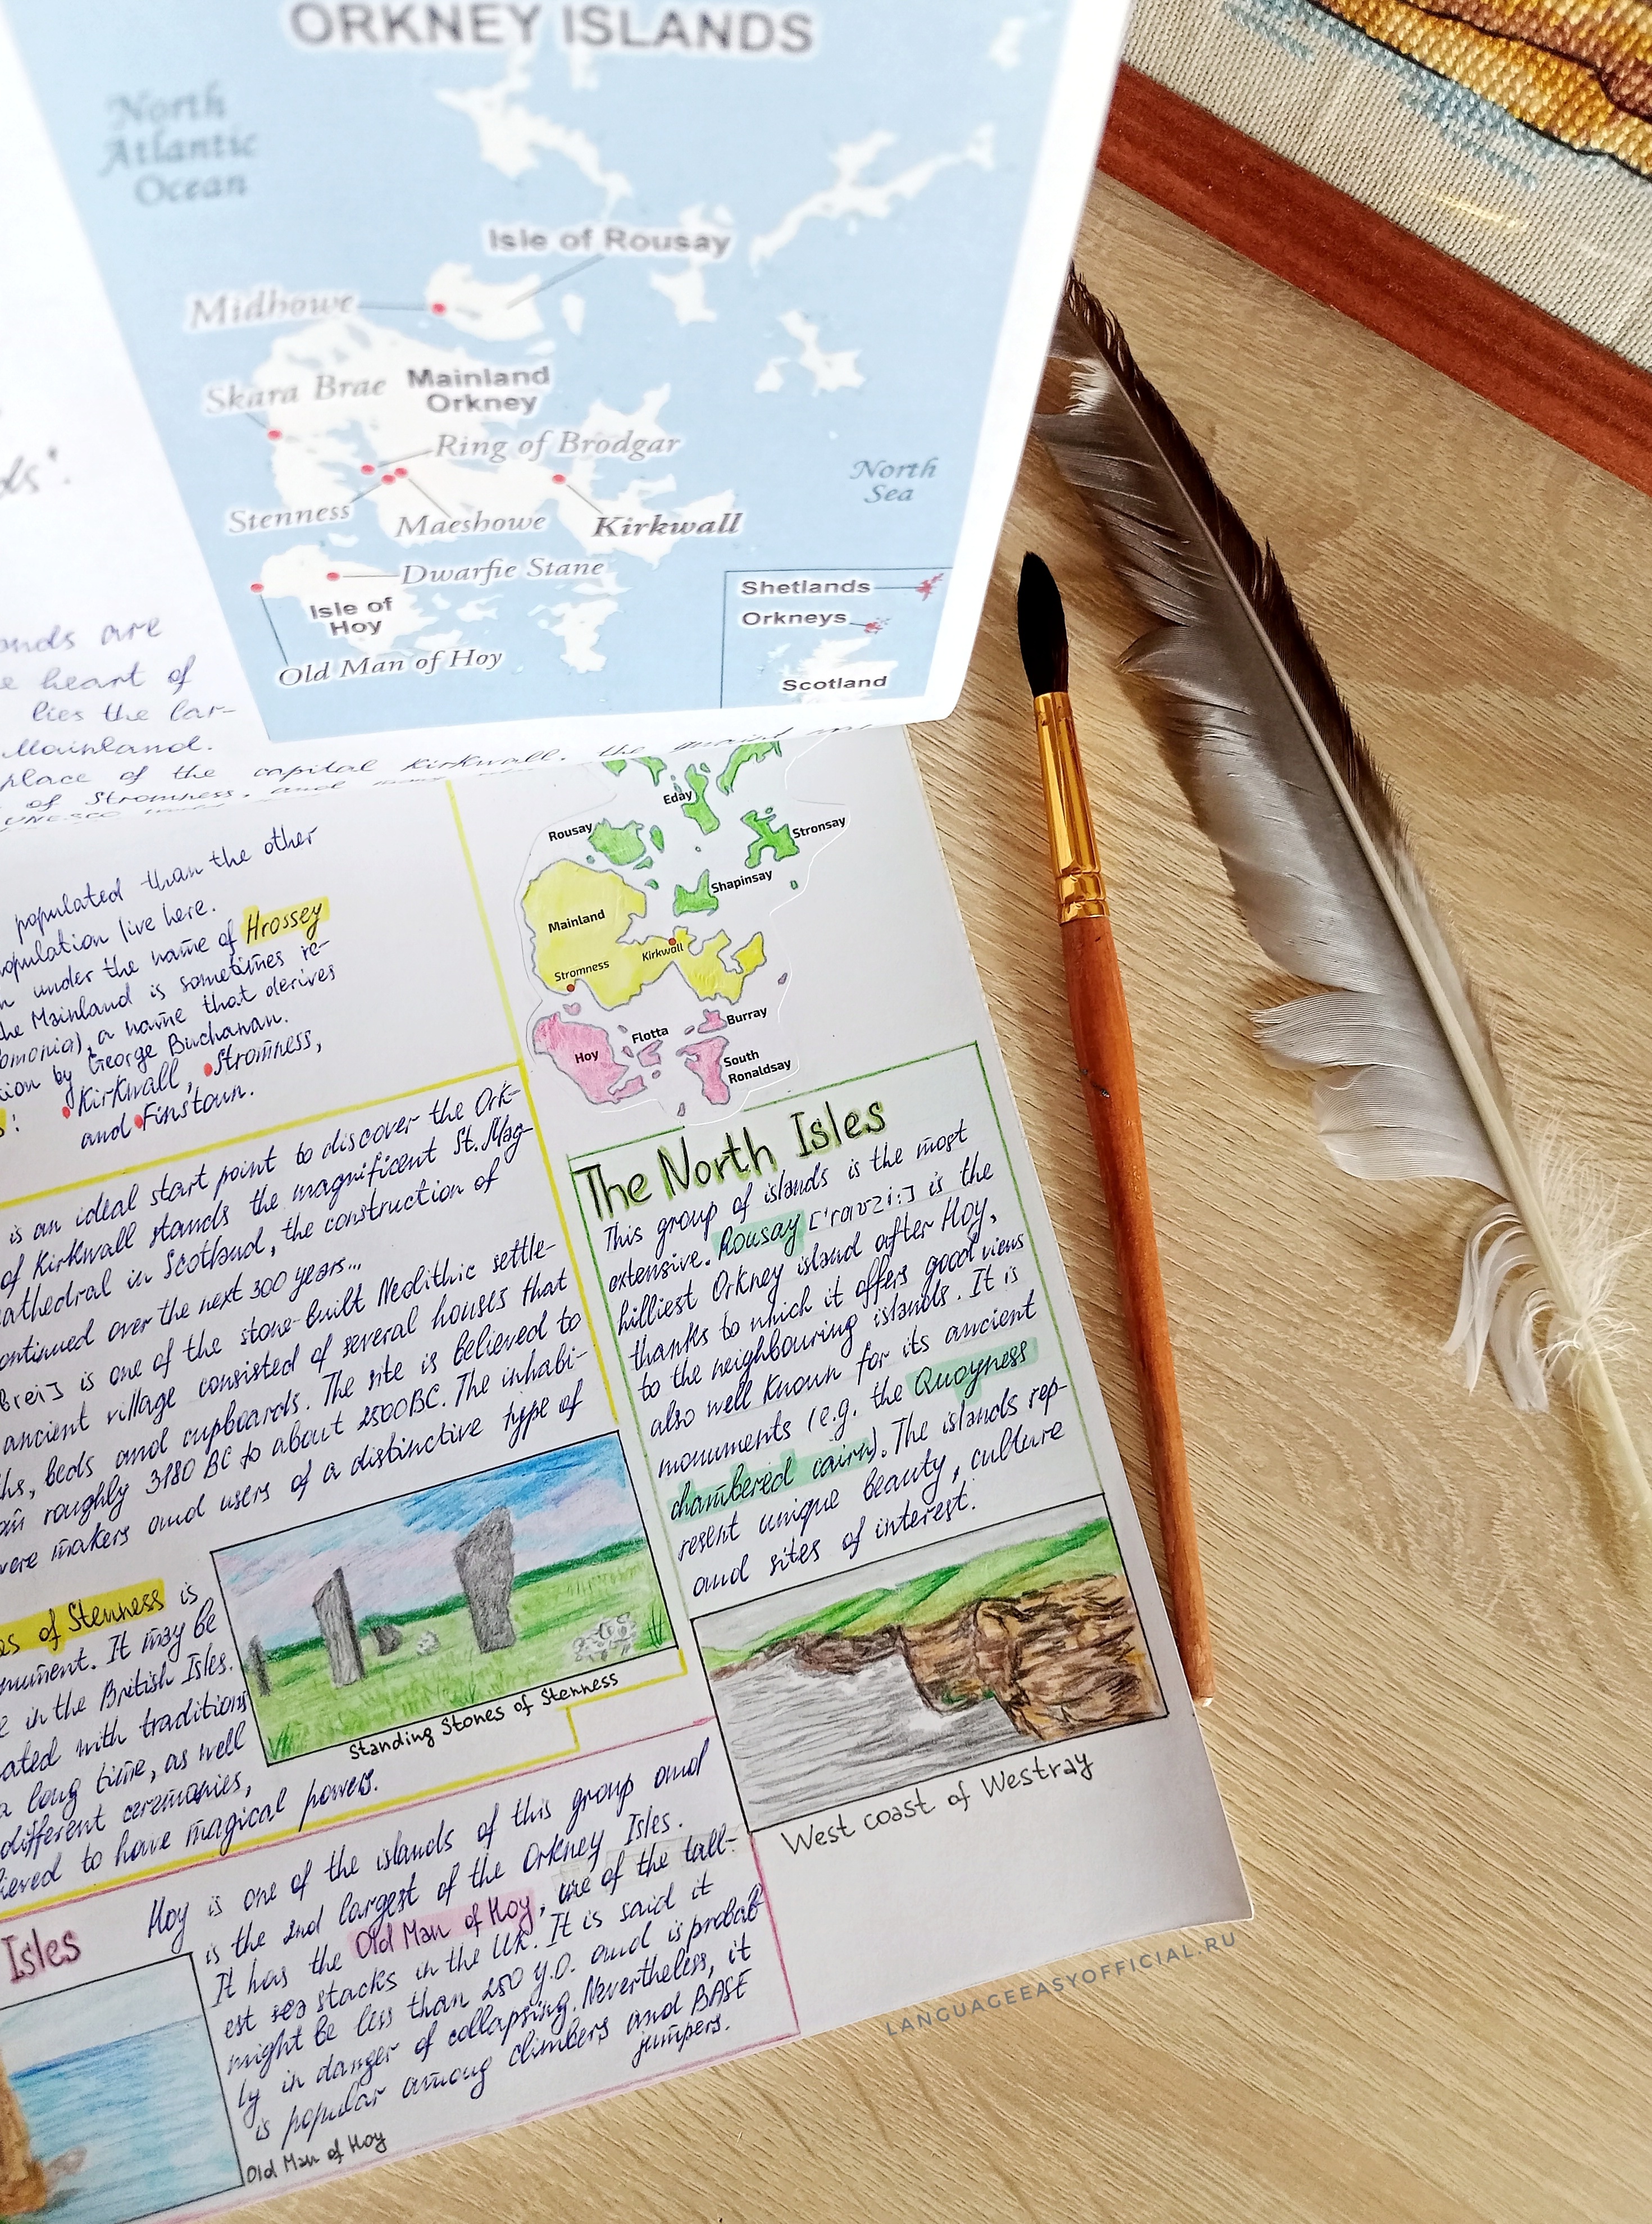 ORKNEY ISLANDS
North
Atlantic
Ocean
Isle of Rousay
Midhowe
Skara Brae
Mainland
Orkney
Ring of Brodgar
Stenness
Maeshowe
Kirkwall
North
Sea
Dwarfie Stane
Isle of
Hoy
Old Man of Hoy
Shetlands
Orkneys
Scotland
ds".
onds are
e heart of
lies the lar-
Mainland.
place of the capital Kirkwall, the
of Stromness, and many
UNESCO
populated than the other
opulation live here.
under the name of Hrossey
the Mainland is sometimes re-
omonia), a name that derives
tion by George Buchanan.
s: Kirkwall, Stromness,
and Finstown.
Eday
Rousay
Stronsay
Shapinsay
Mainland
Kirkwall
Stromness
Burray
Flotta
Hoy
South
Ronaldsay
is an ideal start point to discover the Ork-
of Kirkwall stands the magnificent St. Mag-
cathedral in Scotland, the construction of
continued over the next 300 years...
breɪ] is one of the stone-built Neolithic settle-
ancient village consisted of several houses that
ths, beds and cupboards. The site is believed to
om roughly 3180 BC to about 2500BC. The inhabi-
were makers and users of a distinctive type of
es of Stenness is
nument. It may be
e in the British Isles.
ated with traditions
a long time, as well
different ceremonies,
ieved to have magical powers.
Standing Stones of Stenness
The North Isles
This group of islands is the most
extensive. Rousay ['raʊziː] is the
hilliest Orkney island after Hoy,
thanks to which it offers good views
to the neighbouring islands. It is
also well known for its ancient
monuments (e.g. the Quoyness
chambered cairn). The islands rep-
resent unique beauty, culture
and sites of interest.
West coast of Westray
Isles
Hoy is one of the islands of this group and
is the 2nd largest of the Orkney Isles.
It has the Old Man of Hoy, one of the tall-
est sea stacks in the UK. It is said it
might be less than 250 y.o. and is probab-
ly in danger of collapsing. Nevertheless, it
is popular among climbers and BASE
jumpers.
Old Man of Hoy
LANGUAGEEASYOFFICIAL.RU